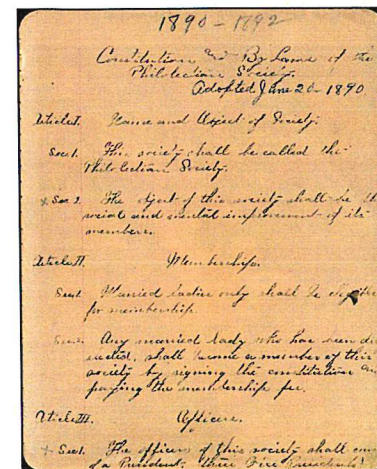 1890-1892
Constitution and By Laws of the
Philolectian Society.
Adopted June 20-1890.
Article I. Name and Object of Society.
Sec 1. This society shall be called the
Philolectian Society.
x Sec 2. The object of this society shall be the
social and mental improvement of its
members.
Article II. Membership.
Sec 1. Married ladies only shall be eligible
for membership.
Sec 2. Any married lady who has been
elected, shall become a member of this
society by signing the constitution and
paying the membership fee.
Article III. Officers.
+ Sec 1. The officers of this society shall
of a President, three Vice Presidents